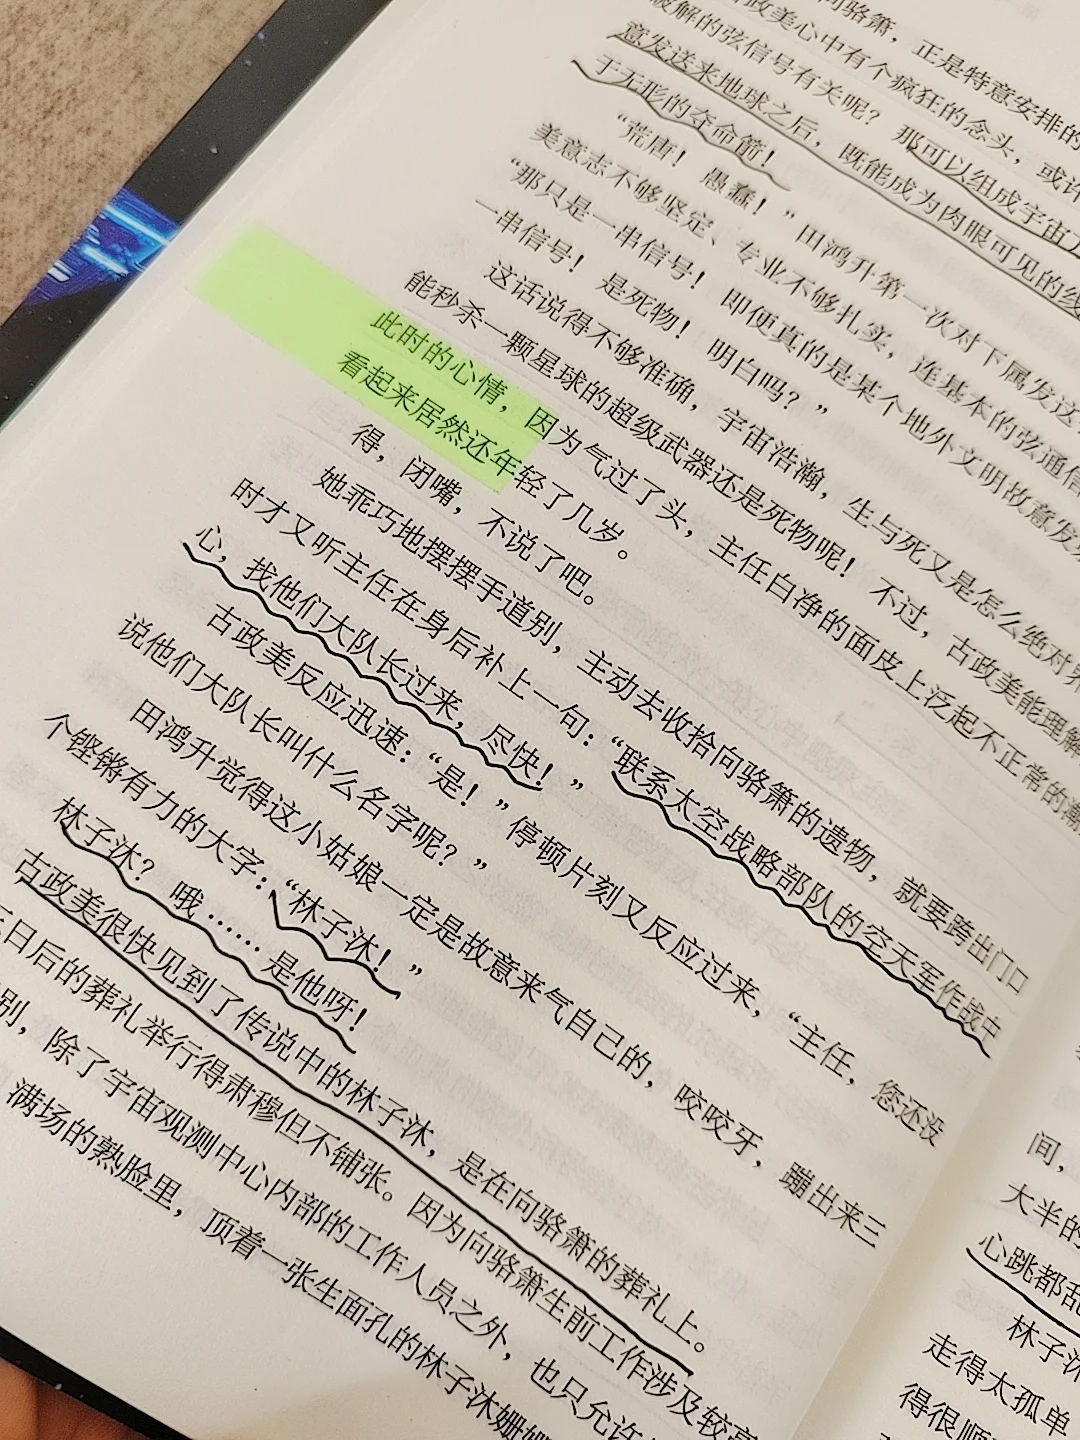 向骆箫，正是特意安排的
古政美心中有个疯狂的念头，或许
破解的弦信号有关呢？那可以组成宇宙
意发送来地球之后，既能成为肉眼可见的线
于无形的夺命箭！
“荒唐！愚蠢！”田鸿升第一次对下属发这
美意志不够坚定、专业不够扎实，连基本的弦通信
“那只是一串信号！即便真的是某个地外文明故意发
一串信号！是死物！明白吗？”
这话说得不够准确，宇宙浩瀚，生与死又是怎么绝对界
能秒杀一颗星球的超级武器还是死物呢！不过，古政美能理解
此时的心情，因为气过了头，主任白净的面皮上泛起不正常的潮
看起来居然还年轻了几岁。
得，闭嘴，不说了吧。
她乖巧地摆摆手道别，主动去收拾向骆箫的遗物，就要跨出门口
时才又听主任在身后补上一句：“联系太空战略部队的空天军作战中
心，找他们大队长过来，尽快！”
古政美反应迅速：“是！”停顿片刻又反应过来，“主任，您还没
说他们大队长叫什么名字呢？”
田鸿升觉得这小姑娘一定是故意来气自己的，咬咬牙，蹦出来三
个铿锵有力的大字：“林子沐！”
林子沐？哦……是他呀！
古政美很快见到了传说中的林子沐，是在向骆箫的葬礼上。
三日后的葬礼举行得肃穆但不铺张。因为向骆箫生前工作涉及较高
别，除了宇宙观测中心内部的工作人员之外，也只允许
满场的熟脸里，顶着一张生面孔的林子沐姗姗
间，
大半的
心跳都乱
林子沐
走得太孤单
得很顺